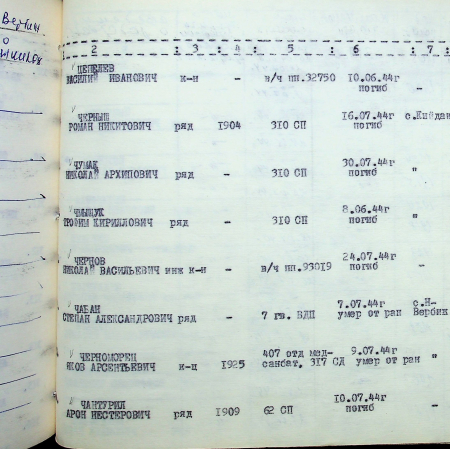 Вербич
о
: 2 : 3 : 4 : 5 : 6 : 7 :
ЦЕПЕЛЕВ
ВАСИЛИЙ ИВАНОВИЧ к-н - в/ч пп.32750 10.06.44г
погиб -
ЧЕРНЫШ
РОМАН НИКИТОВИЧ ряд 1904 310 СП 16.07.44г
погиб
ЧУМАК
НИКОЛАЙ АРХИПОВИЧ ряд - 310 СП 30.07.44г
погиб "
КИРИЛЛОВИЧ ряд - 310 СП 8.06.44г
погиб "
ЧЕРНОВ
НИКОЛАЙ ВАСИЛЬЕВИЧ инж к-н - в/ч пп.93019 24.07.44г
погиб -
ЧАБАН
СТЕПАН АЛЕКСАНДРОВИЧ ряд - 7 гв. ВДП 7.07.44г
умер от ран с.Н-
Вербич
ЧЕРНОМОРЕЦ
ЯКОВ АРСЕНТЬЕВИЧ к-ц 1925 407 отд мед-
санбат, 317 СД 9.07.44г
умер от ран "
ЧАНТУРИЛ
АРОН НЕСТЕРОВИЧ ряд 1909 62 СП 10.07.44г
погиб -